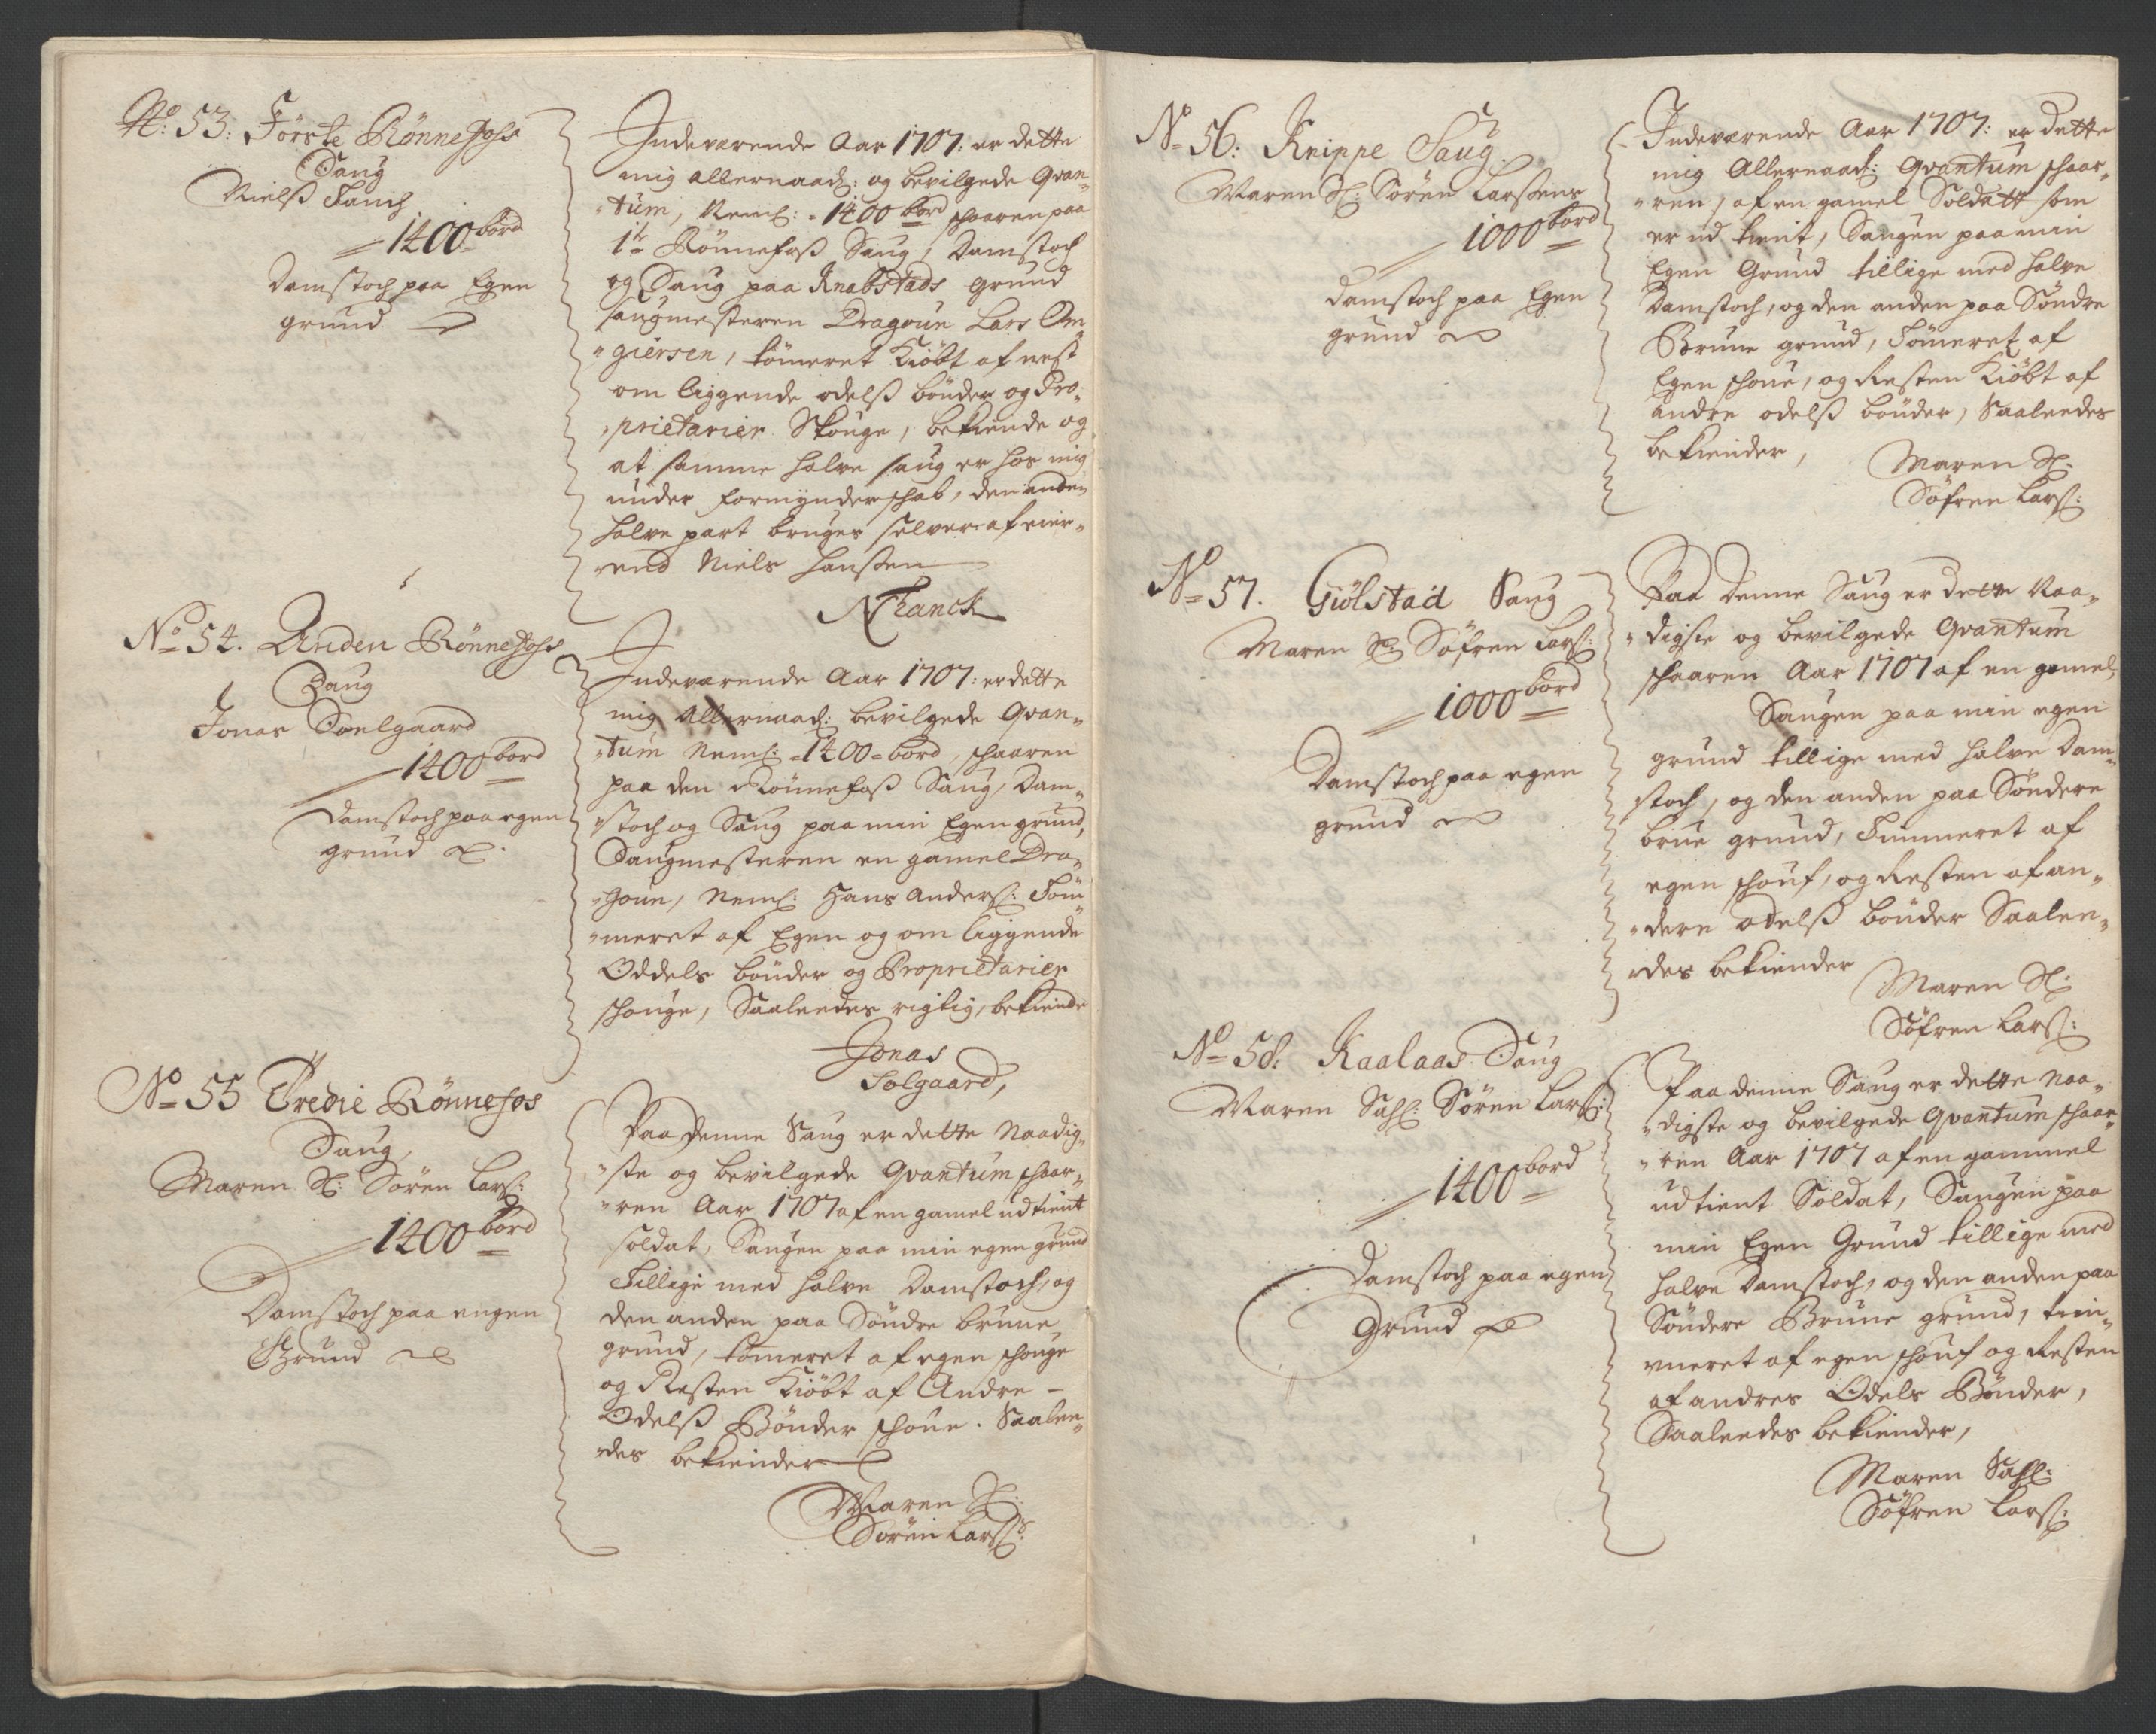 No: 53: Förste Rönnefoss
Saug
Nielß Fanch
1400 bord
Damstoch paa Egen
grund
Indeværende Aar 1707: er dette
mig allernaad: og bevilgede Qvan„
„tum, Neml: 1400 bord skaaren paa
1te Rönnefoß Saug, Damstoch
og Saug paa Knabstads grund
saugmesteren Dragoun Lars Om„
„giersen, tömeret Kiöbt af nest
om liggende odelß bönder og Pro„
„prietarier Skouge, bekiende og
at samme halve saug er hos mig
under formynderskab, den anden
halve part bruges selver af eier„
„end Niels Hanssen
NFranck
No 54. Anden Rönnefoss
Saug
Jonas Soelgaard
1400 bord
Damstoch paa egen
grund
Indeværende Aar 1707: er dette
mig Allernaad: bevilgede Qvan„
„tum Neml: 1400 bord, skaaren
paa den Rönnefoß Saug, Dam„
„stoch og Saug paa min Egen grund,
Saugmesteren en gamel Dra„
„goun, Neml: Hans Anders: Töm„
„meret af Egen og om liggende
Oddels bönder og Proprietarier
skouge, Saaleedes rigtig, bekiende
Jonas
Solgaard,
No 55 Tredie Rönnefos
Saug,
Maren Sl: Sören Lars:
1400 bord
Damstoch paa eygen
Grund
Paa denne Saug er dette Naadig„
„ste og bevilgede Qvantum skaar„
„ren Aar 1707 af en gamel udtient
soldat, Saugen paa min egen grund
Tillige med halve Damstoch, og
den anden paa Söndre brune
grund, tömeret af egen skouge
og Resten Kiöbt af Andre
Odelß Bönder skoue. Saalee„
„des bekiender
Maren Sl:
Sören Lars:
No 56: Knippe Saug.
Maren Sl: Sören Larssens
1000 bord
Damstoch paa Egen
grund
Indeværende Aar 1707: er dette
mig Allernaad: Qvantum skaar„
„ren, af en gamel Soldatt som
er ud tient, Saugen paa min
Egen Grund tillige med halve
Damstoch, og den anden paa Söndre
Brune grund, Tömeret af
Egen skoue, og Resten Kiöbt af
andre odelß bönder, Saaleedes
bekiender,
Maren Sl:
Söfren Lars:
No 57. Giölstad Saug
Maren Sl: Söfren Lars:
1000 bord
Damstoch paa egen
grund
Paa denne Saug er dette Naa„
„digste og bevilgede Qvantum
skaaren Aar 1707 af en gamel,
Saugen paa min egen
grund tillige med halve Dam„
stoch, og den anden paa Söndere
brue grund, Timmeret af
egen skouf, og Resten af an„
„dere odelß bönder Saalee„
„des bekiender
Maren Sl:
Söfren Lars:
No 58. Kaalaas Saug
Maren Sahl: Sören Lars:
1400 bord
Damstoch paa egen
Grund
Paa denne Saug er dette Naa„
„digste og bevilgede Qvantum skaar„
„ren Aar 1707 af en gammel
udtient Soldat, Saugen paa
min Egen Grund tillige med
halve Damstoch, og den anden paa
Söndere Brune grund, tim„
meret af egen skouf og Resten
af andres Odels Bönder,
Saaleedes bekiender,
Maren Sahl:
Söfren Lars: